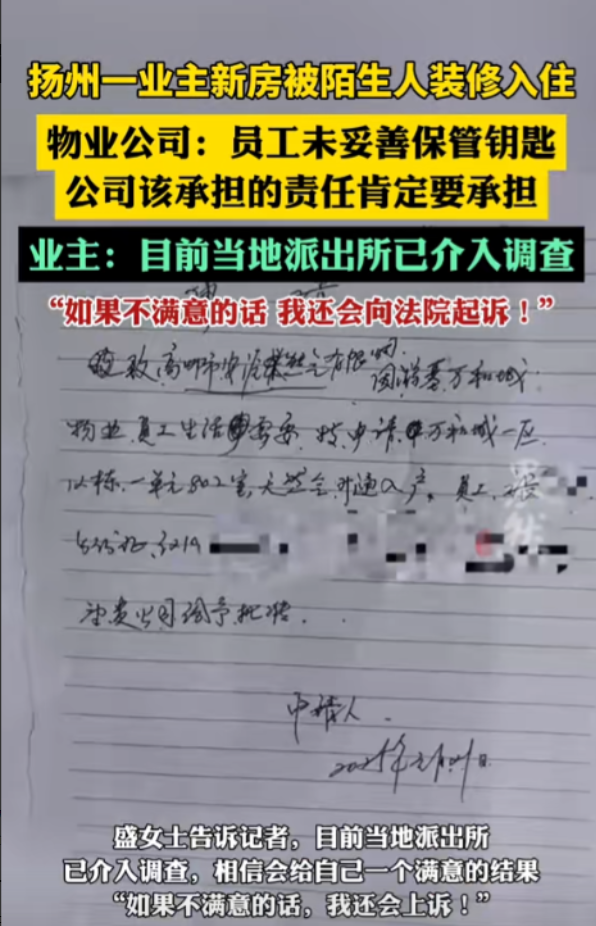 扬州一业主新房被陌生人装修入住
物业公司：员工未妥善保管钥匙
公司该承担的责任肯定要承担
业主：目前当地派出所已介入调查
“如果不满意的话 我还会向法院起诉！”
致高邮市 有限公司
因 万和城
物业员工生活需要 特申请 万和城一区
栋一单元802室,天然气开通入户,员工
身份证
望贵公司给予批准.
申请人.
盛女士告诉记者，目前当地派出所
已介入调查，相信会给自己一个满意的结果
“如果不满意的话，我还会上诉！”